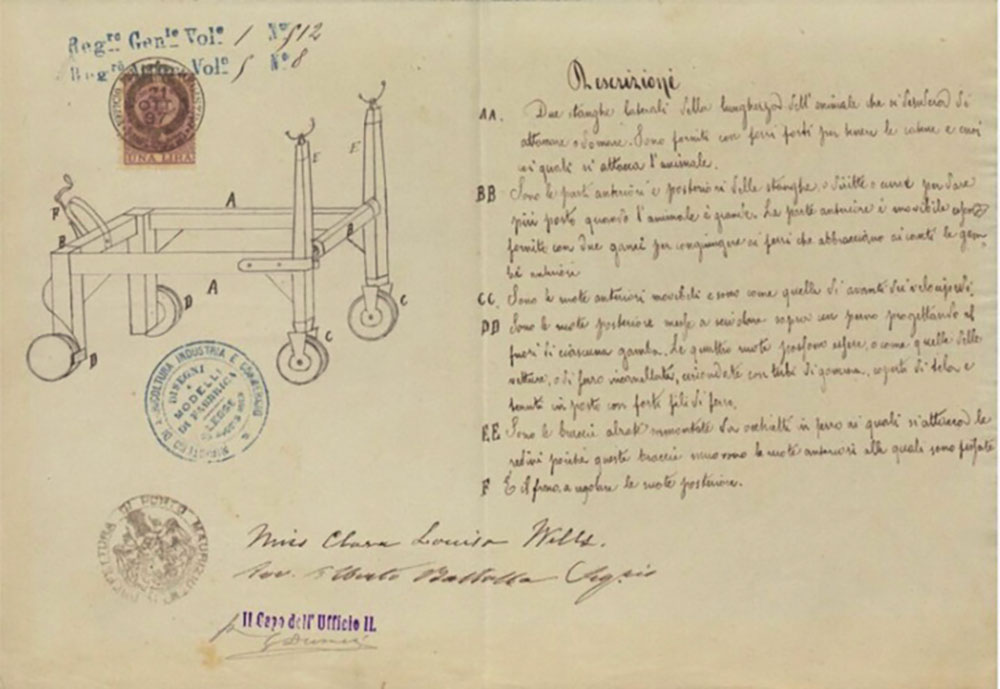 Reg.ro Gen.le Vol.e 1 N.o 512
Reg.ro Vol.e 5 N.o 8
31
OTT
97
UNA LIRA
Descrizione
AA. Due stanghe laterali della lunghezza dell'animale che si desidera di
attaccare o domare. Sono fornite con ferri forti per tenere le catene e
coi quali si attacca l'animale.
BB Sono le parti anteriori e posteriori delle stanghe, o diritte o curve per dare
più posto quando l'animale è grande. La parte anteriore è movibile
fornite con due ganci per congiungere ai ferri che abbracciano ai canti le gam-
be anteriori
CC. Sono le ruote anteriori movibili e sono come quelle di avanti dei velocipedi.
DD Sono le ruote posteriore messe a sopra un perno progettando al
fuori di ciascuna gamba. Le quattro ruote possono essere, o come quelle delle
vetture, o di ferro incanallate, circondate con tubi di gomma, coperti di tela e
tenuti in posto con forte fili di ferro.
EE Sono le braccie alzate sormontate da occhialti in ferro ai quali s'attaccano le
redini poiché queste braccie muovono le ruote anteriori alle quali sono fissate
F È il freno, a regolare le ruote posteriore.
E
E
A
F
B
B
A
D
C
D
C
MINISTERO DI AGRICOLTURA INDUSTRIA E COMMERCIO
DISEGNI
MODELLI
DI FABBRICA
LEGGE
PREFETTURA DI PORTO MAURIZIO
Miss Clara Louisa Wells.
Avv. Alberto Battolla
Il Capo dell'Ufficio II.